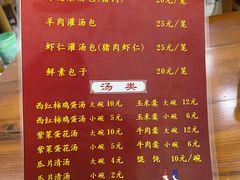 20元/笼
羊肉灌汤包 25元/笼
虾仁灌汤包(猪肉虾仁) 25元/笼
鲜素包子 20元/笼
汤 类
西红柿鸡蛋汤 大碗 10元 玉米羹 大碗 12元
西红柿鸡蛋汤 小碗 5元 玉米羹 小碗 6元
紫菜蛋花汤 大碗 10元 牛肉羹 大碗 12元
紫菜蛋花汤 小碗 5元 牛肉羹 小碗 6元
瓜片清汤 大碗 4元 馄饨 10元/碗
瓜片清汤 小碗 2元